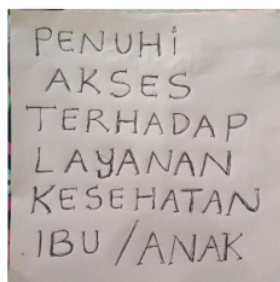 PENUHi
AKSES
TERHADAP
LAYANAN
KESEHATAN
IBU /ANAK